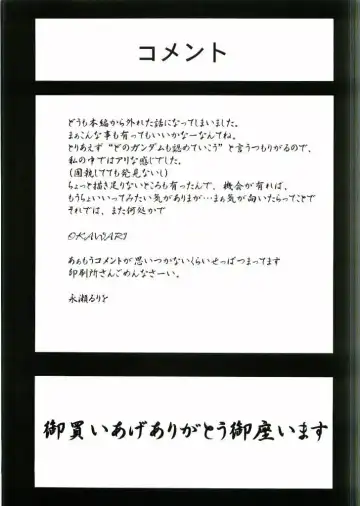 コメント
どうも本編から外れた話になってしまいました。
まぁこんな事も有ってもいいかなーなんてね。
とりあえず“どのガンダムも認めていこう”と言うつもりがるので、
私の中ではアリな感じでした。
ちょっと描き足りないところも有ったんで、機会が有れば、
もうちょいいってみたい気がありまが…まぁ気が向いたらってことで
それでは、また何処かで
OKAWARI
あぁもうコメントが思いつかないくらいせっぱつまってます
印刷所さんごめんなさーい。
永瀬るりを
御買いあげありがとう御座います